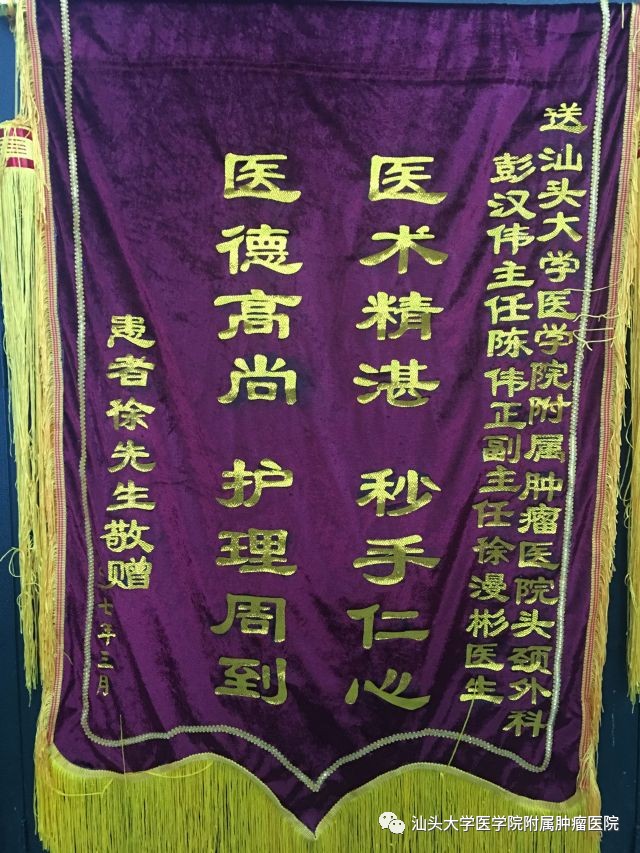 送汕头大学医学院附属肿瘤医院头颈外科
彭汉伟主任陈伟正副主任徐漫彬医生
医术精湛 秒手仁心
医德高尚 护理周到
患者徐先生敬赠
七年三月
汕头大学医学院附属肿瘤医院